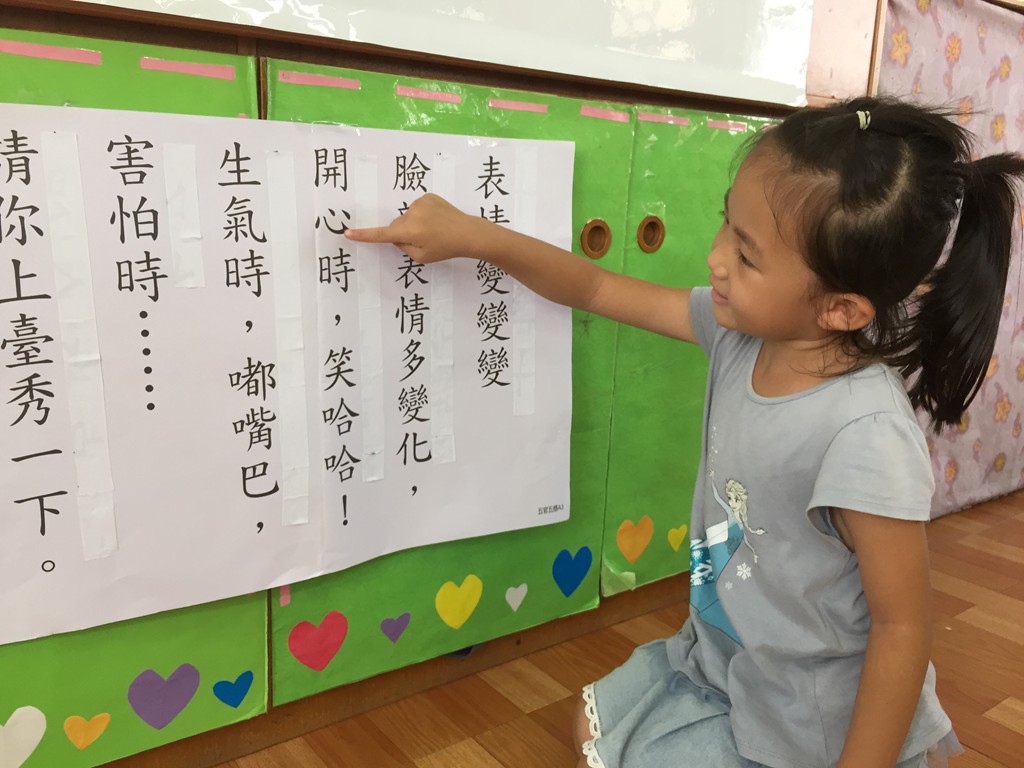 表情變變變
臉部表情多變化，
開心時，笑哈哈！
生氣時，嘟嘴巴，
害怕時……
請你上臺秀一下。
五官五感A3